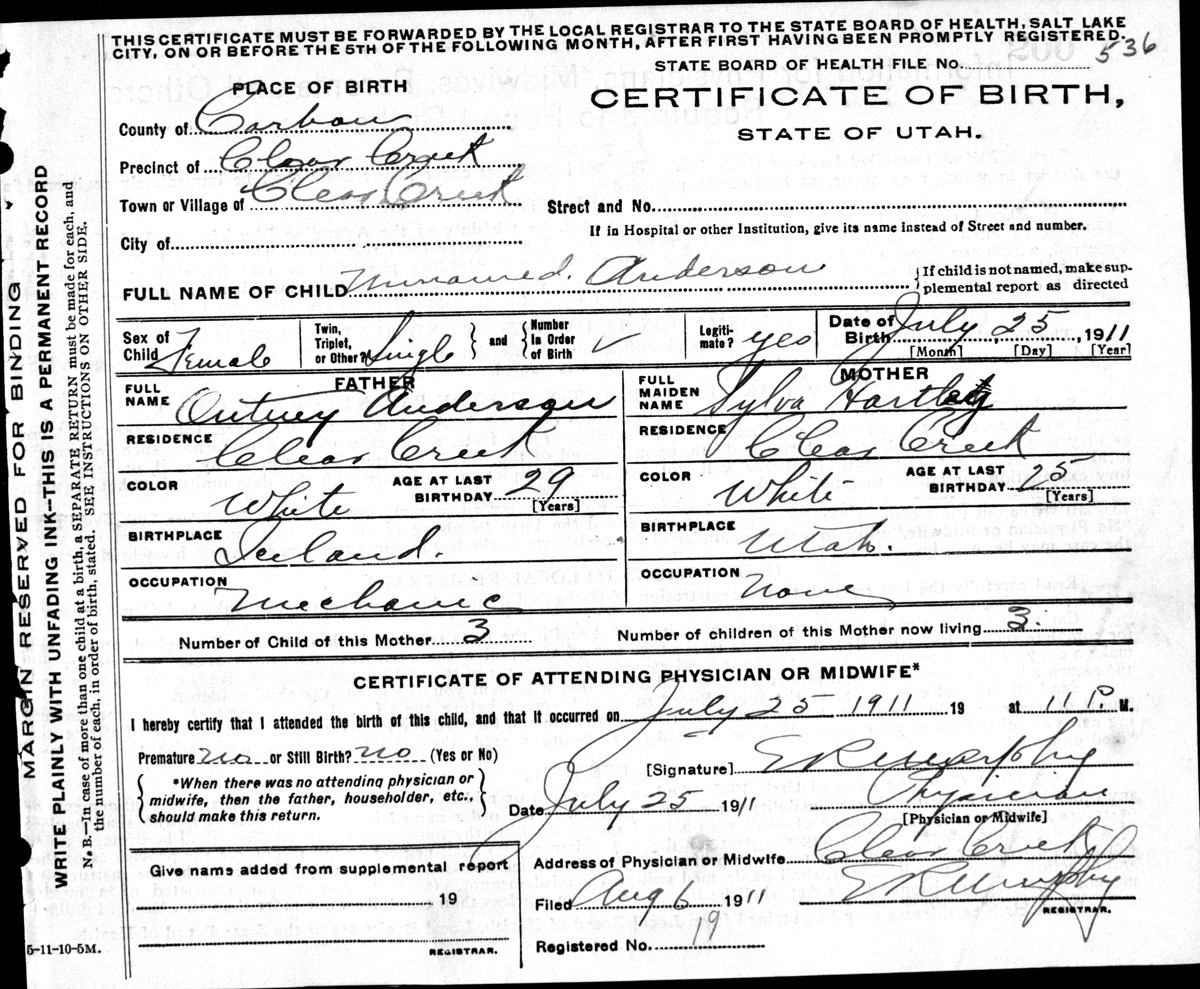 THIS CERTIFICATE MUST BE FORWARDED BY THE LOCAL REGISTRAR TO THE STATE BOARD OF HEALTH, SALT LAKE
CITY, ON OR BEFORE THE 5TH OF THE FOLLOWING MONTH, AFTER FIRST HAVING BEEN PROMPTLY REGISTERED.
STATE BOARD OF HEALTH FILE No. 536
PLACE OF BIRTH
CERTIFICATE OF BIRTH,
STATE OF UTAH.
County of Carbon
Precinct of Clear Creek
Town or Village of Clear Creek
Street and No.
City of
If in Hospital or other Institution, give its name instead of Street and number.
FULL NAME OF CHILD Unnamed. Anderson
{If child is not named, make sup-
plemental report as directed
Sex of Child Female
Twin, Triplet, or Other? Single } and { Number In Order of Birth
Legiti-mate? yes
Date of Birth July 25, 1911
[Month] [Day] [Year]
FATHER
FULL NAME Outney Anderson
RESIDENCE Clear Creek
COLOR White
AGE AT LAST BIRTHDAY 29
[Years]
BIRTHPLACE Iceland.
OCCUPATION Mechanic
MOTHER
FULL MAIDEN NAME Sylva Hartley
RESIDENCE Clear Creek
COLOR White
AGE AT LAST BIRTHDAY 25
[Years]
BIRTHPLACE Utah.
OCCUPATION None
Number of Child of this Mother 3
Number of children of this Mother now living 3.
CERTIFICATE OF ATTENDING PHYSICIAN OR MIDWIFE*
I hereby certify that I attended the birth of this child, and that it occurred on July 25 1911 19 at 11 P. M.
Premature No or Still Birth? No (Yes or No)
{ *When there was no attending physician or
midwife, then the father, householder, etc.,
should make this return. }
[Signature] E R Murphy
Date July 25 1911
Physician
[Physician or Midwife]
Give name added from supplemental report
19
REGISTRAR.
Address of Physician or Midwife Clear Creek
Filed Aug 6 1911
E R Murphy
REGISTRAR.
Registered No. 19
5-11-10-5M.
MARGIN RESERVED FOR BINDING
WRITE PLAINLY WITH UNFADING INK—THIS IS A PERMANENT RECORD
N. B.—In case of more than one child at a birth, a SEPARATE RETURN must be made for each, and
the number of each, in order of birth, stated. SEE INSTRUCTIONS ON OTHER SIDE.